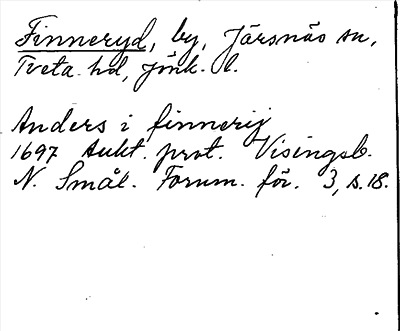 Finneryd, by, Järsnäs sn,
Tveta hd, Jönk. l.
Anders i finnerij
1697 Aukt. prot. Visingsb.
N. Smål. Fornm. för. 3, s. 18.